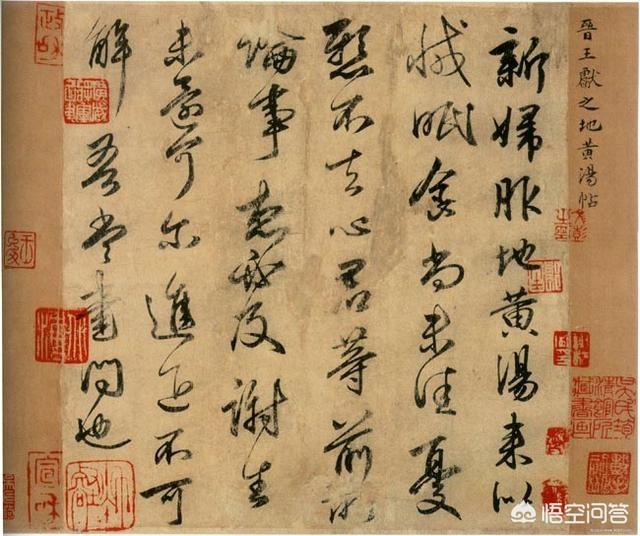 晉王獻之地黃湯帖
新婦服地黃湯來似
減眠食尚未佳憂
懸不去心君等前所
論事想必及謝生
未還可爾進退不可
解吾當書問也
悟空问答